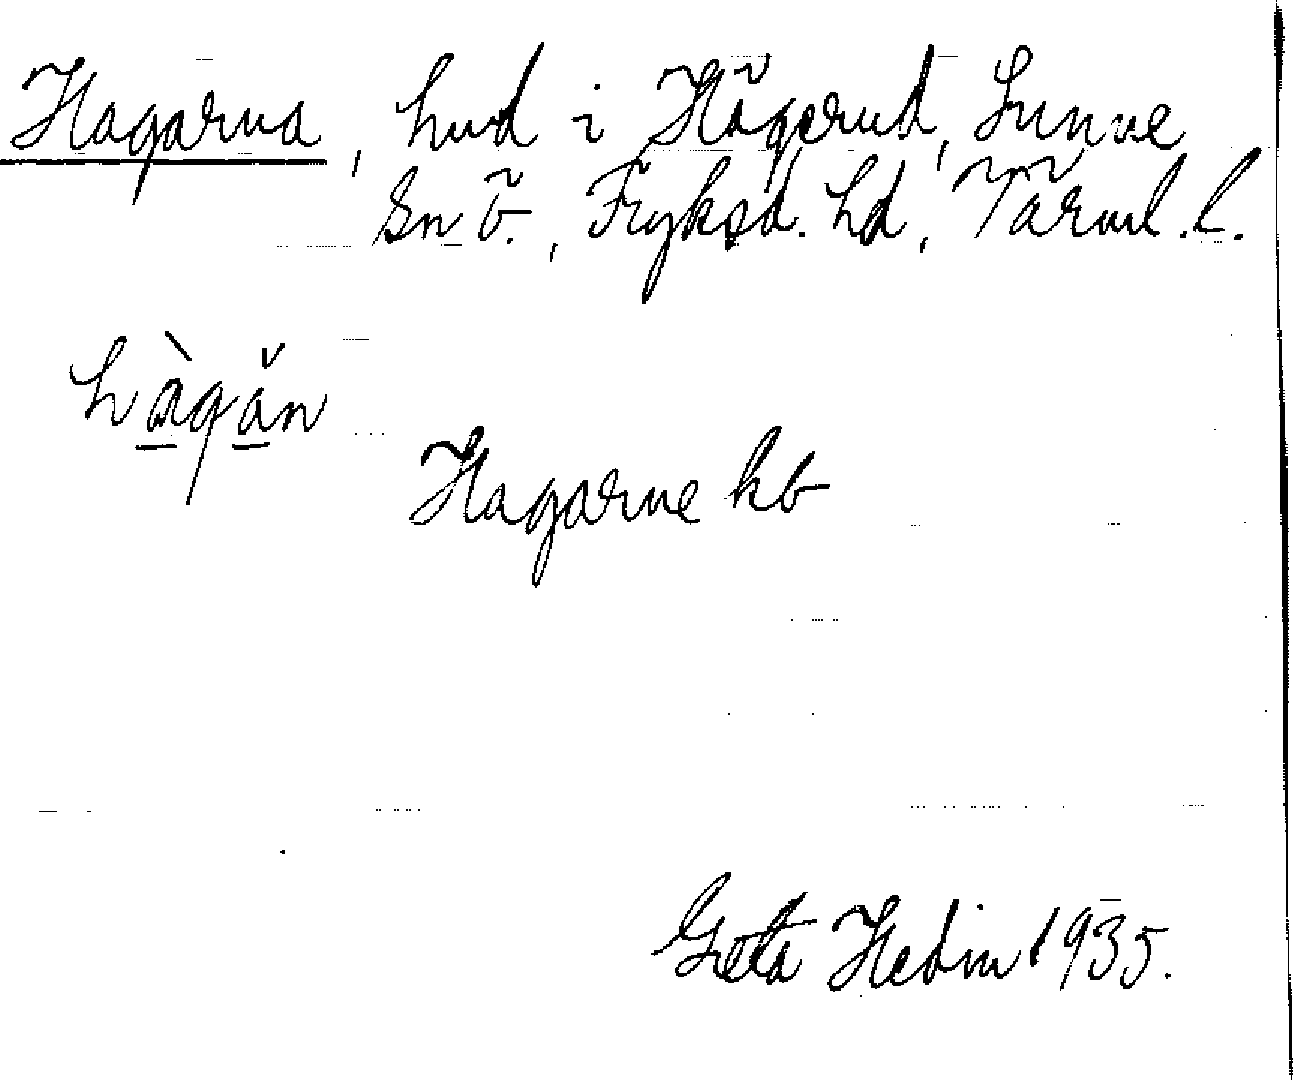 Hagarna, hvd i Hågerud, Sunne
Sn Ö., Fryksd. hd, Värml. l.
hàgǎn
Hagarne kb
Greta Hedin 1935.